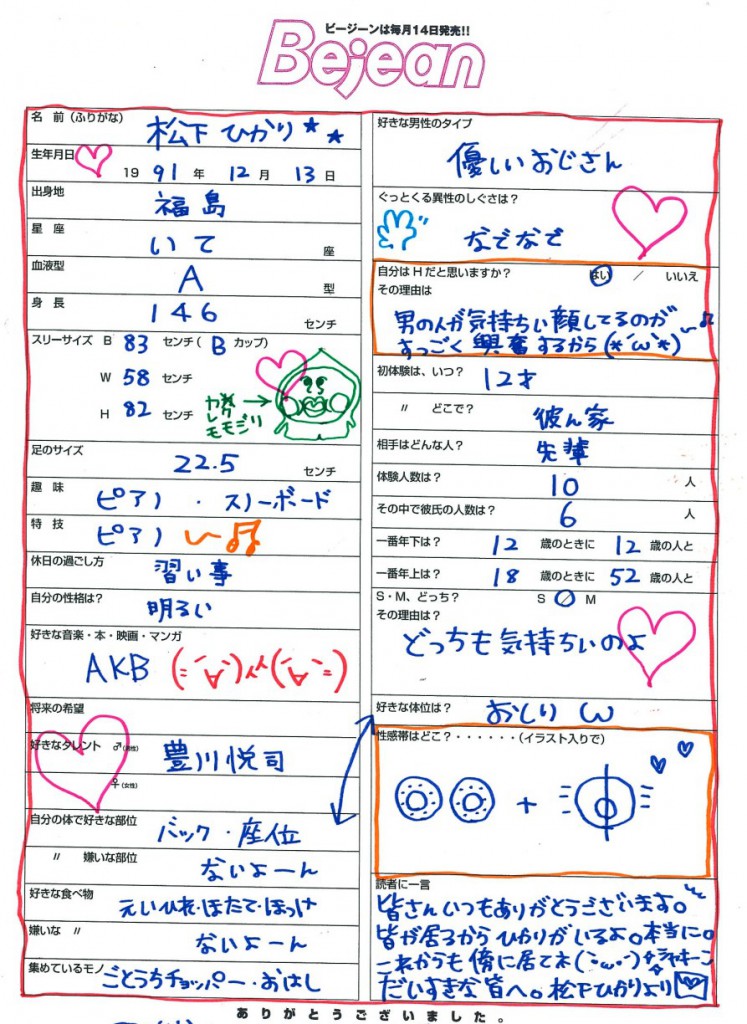 ビージーンは毎月14日発売!!
Bejean
名 前（ふりがな）
松下 ひかり★★
生年月日
19 91 年 12 月 13 日
出身地
福島
星 座
いて 座
血液型
A 型
身 長
146 センチ
スリーサイズ B 83 センチ（ B カップ）
W 58 センチ
H 82 センチ
モモジリ
足のサイズ
22.5 センチ
趣 味
ピアノ ・ スノーボード
特 技
ピアノ
休日の過ごし方
習い事
自分の性格は？
明るい
好きな音楽・本・映画・マンガ
AKB
将来の希望
好きなタレント ♂（男性）
豊川悦司
♀（女性）
自分の体で好きな部位
バック・座位
〃 嫌いな部位
ないよーん
好きな食べ物
えいひれ・ほたて・ほっけ
嫌いな 〃
ないよーん
集めているモノ
ごとうちチョッパー・おはし
好きな男性のタイプ
優しいおじさん
ぐっとくる異性のしぐさは？
なでなで
自分はHだと思いますか？ はい ／ いいえ
その理由は
男の人が気持ちい顔してるのが
すっごく興奮するから(*´ω`*)
体験人数は？
10 人
その中で彼氏の人数は？
6 人
一番年上は？ 18 歳のときに 52 歳の人と
S・M、どっち？ S ／ M
その理由は？
どっちも気持ちいのよ
好きな体位は？
おしり ω
性感帯はどこ？・・・・・・（イラスト入りで）
＋
読者に一言
皆さんいつもありがとうございます。
皆が居るからひかりがいるよ。本当に。
これからも傍に居てネ(´・ω・`)
だいすきな皆へ。松下ひかりより
ありがとうございました。